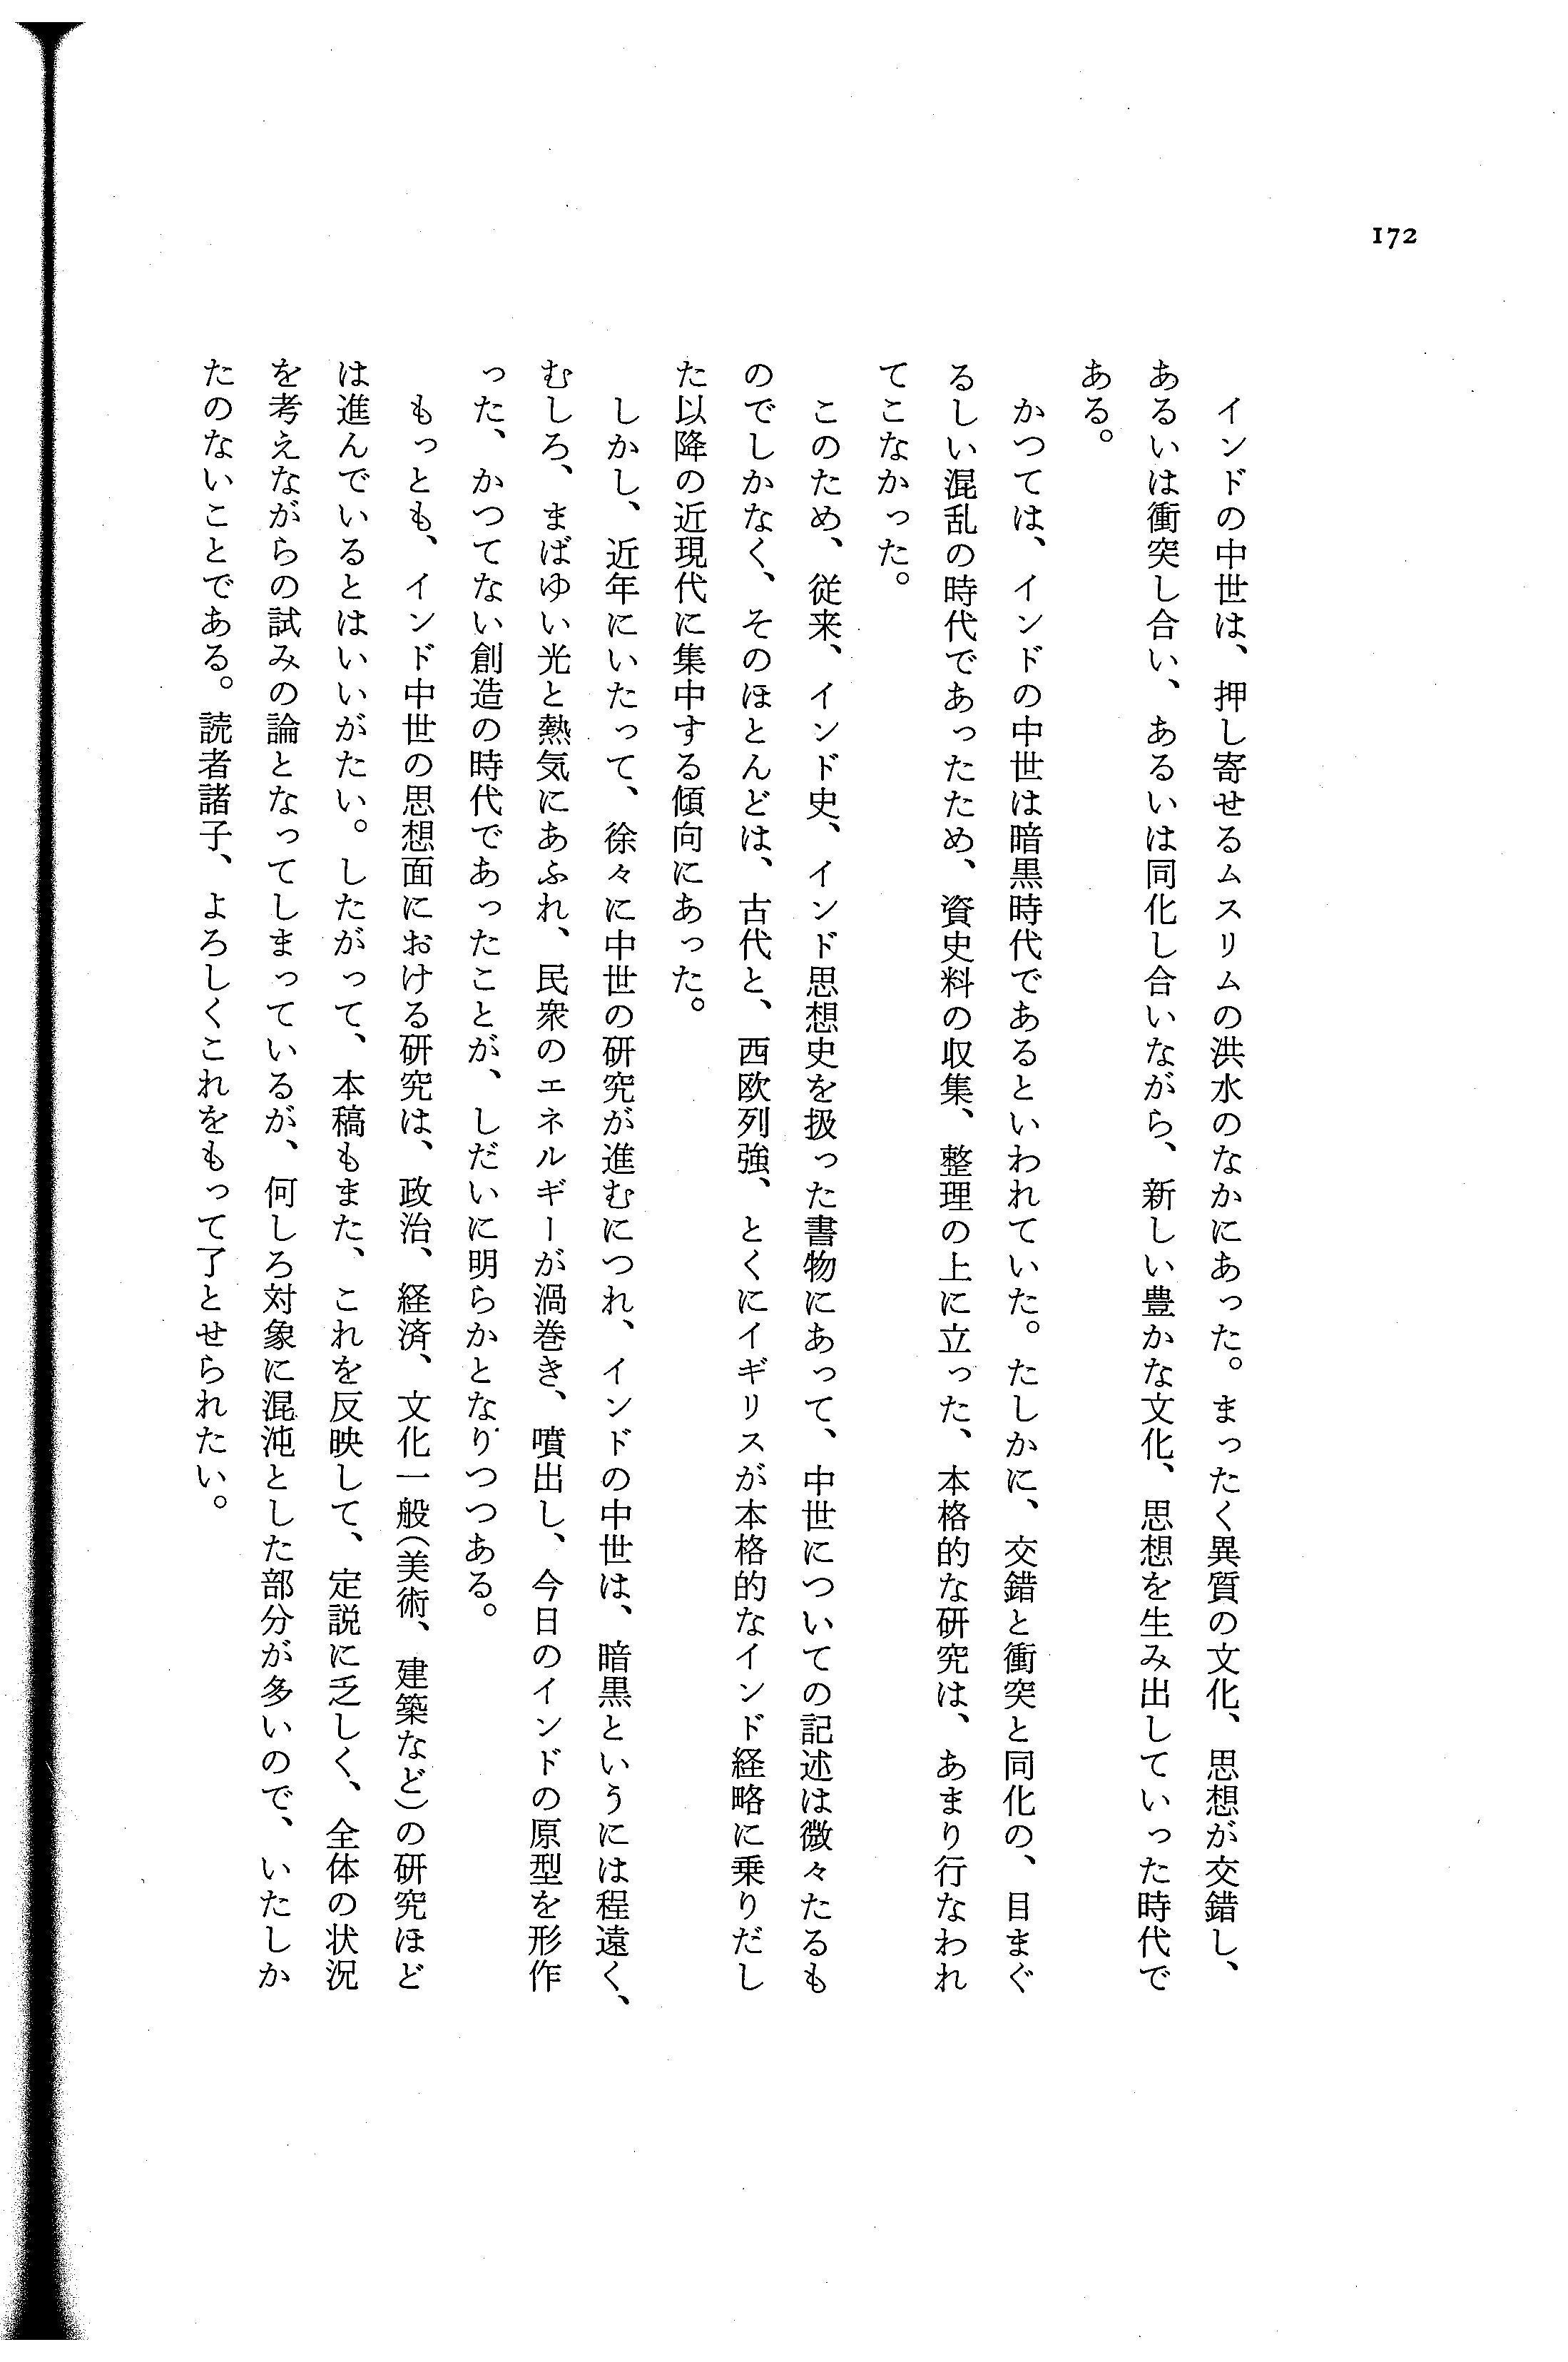 172
　インドの中世は、押し寄せるムスリムの洪水のなかにあった。まったく異質の文化、思想が交錯し、
あるいは衝突し合い、あるいは同化し合いながら、新しい豊かな文化、思想を生み出していった時代で
ある。
　かつては、インドの中世は暗黒時代であるといわれていた。たしかに、交錯と衝突と同化の、目まぐ
るしい混乱の時代であったため、資史料の収集、整理の上に立った、本格的な研究は、あまり行なわれ
てこなかった。
　このため、従来、インド史、インド思想史を扱った書物にあって、中世についての記述は微々たるも
のでしかなく、そのほとんどは、古代と、西欧列強、とくにイギリスが本格的なインド経略に乗りだし
た以降の近現代に集中する傾向にあった。
　しかし、近年にいたって、徐々に中世の研究が進むにつれ、インドの中世は、暗黒というには程遠く、
むしろ、まばゆい光と熱気にあふれ、民衆のエネルギーが渦巻き、噴出し、今日のインドの原型を形作
った、かつてない創造の時代であったことが、しだいに明らかとなりつつある。
　もっとも、インド中世の思想面における研究は、政治、経済、文化一般（美術、建築など）の研究ほど
は進んでいるとはいいがたい。したがって、本稿もまた、これを反映して、定説に乏しく、全体の状況
を考えながらの試みの論となってしまっているが、何しろ対象に混沌とした部分が多いので、いたしか
たのないことである。読者諸子、よろしくこれをもって了とせられたい。